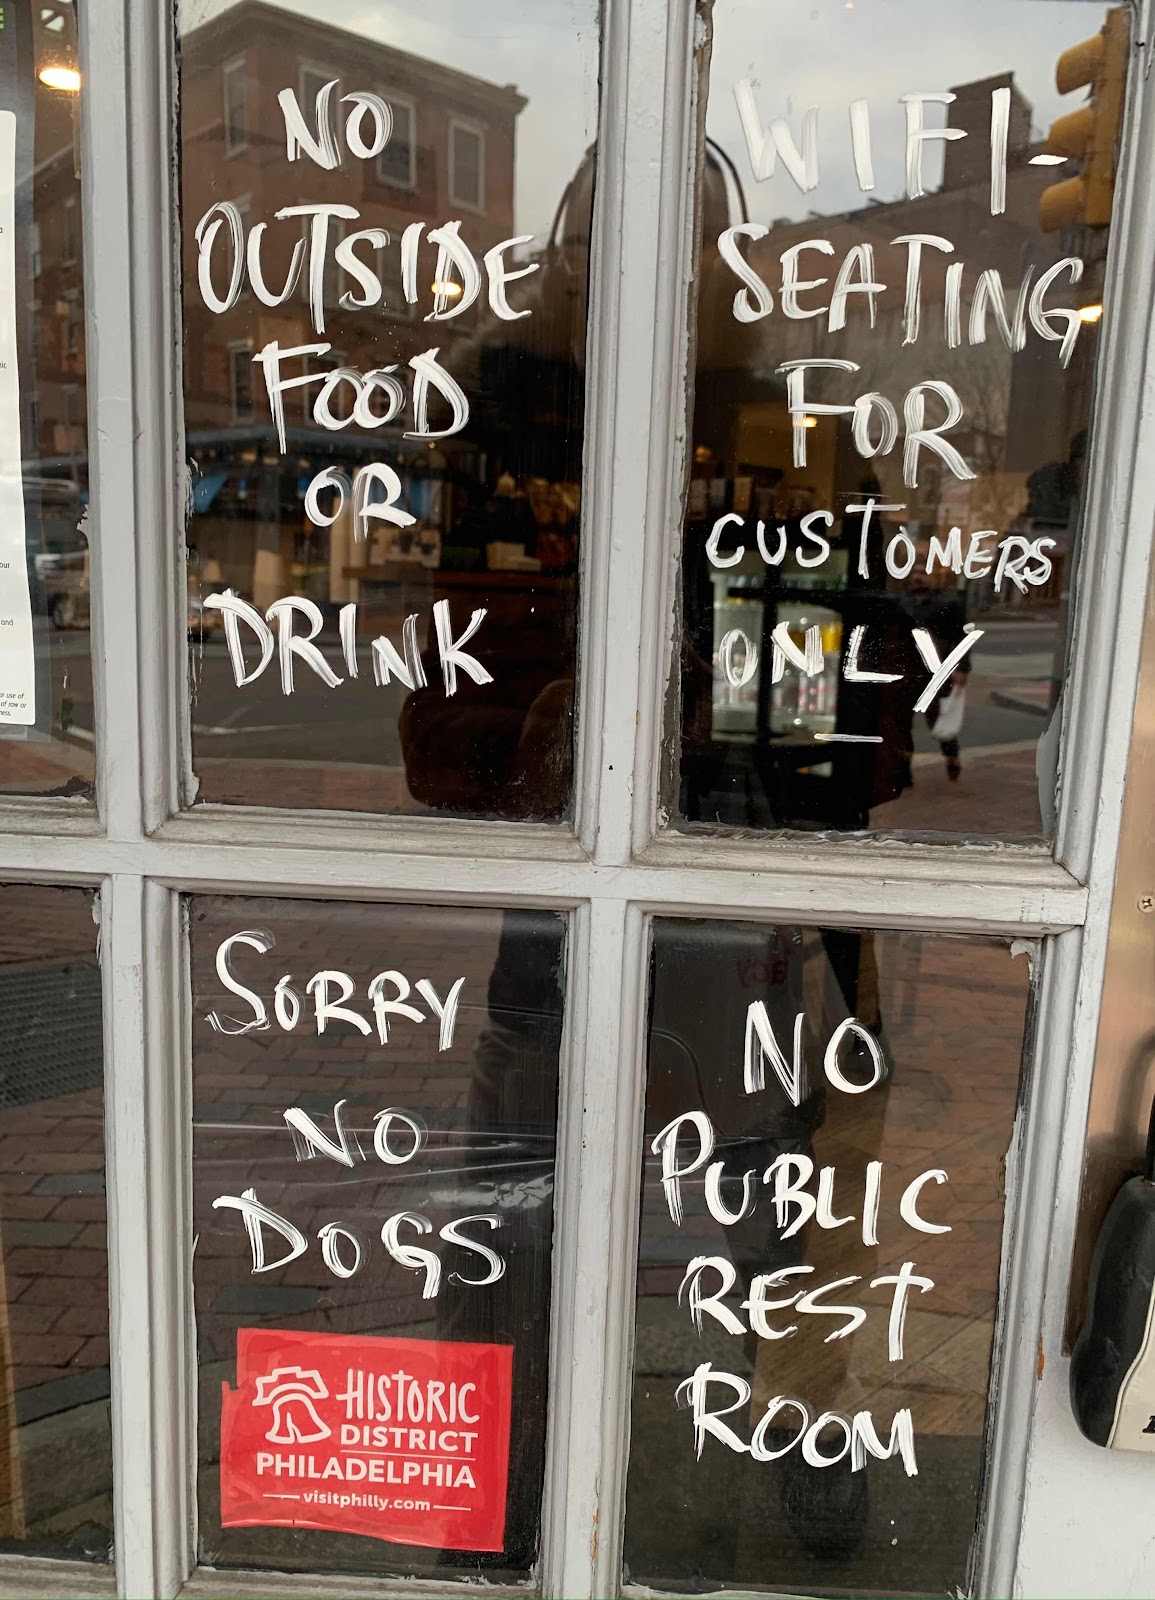 NO
OUTSIDE
FOOD
OR
DRINK
WIFI-
SEATING
FOR
CUSTOMERS
ONLY
SORRY
NO
DOGS
HISTORIC
DISTRICT
PHILADELPHIA
visitphilly.com
NO
PUBLIC
REST
ROOM
our
and
use of
of row or